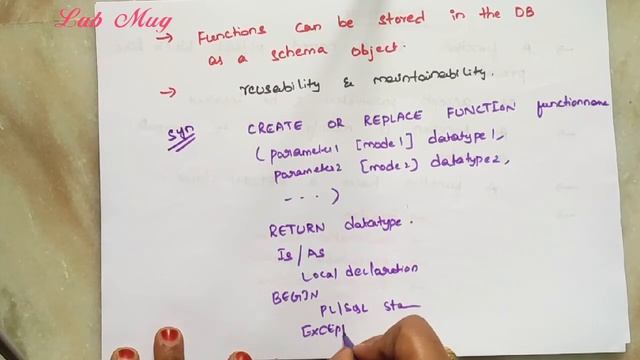 Lab Mug
→ Functions can be stored in the DB
as a schema object.
→ reusability & maintainability.
Syn CREATE OR REPLACE FUNCTION functionname
(parameter1 [mode1] datatype1,
parameter2 [mode2] datatype2,
....)
RETURN datatype.
Is/As
Local declaration
BEGIN
PL/SQL sta
EXCEP